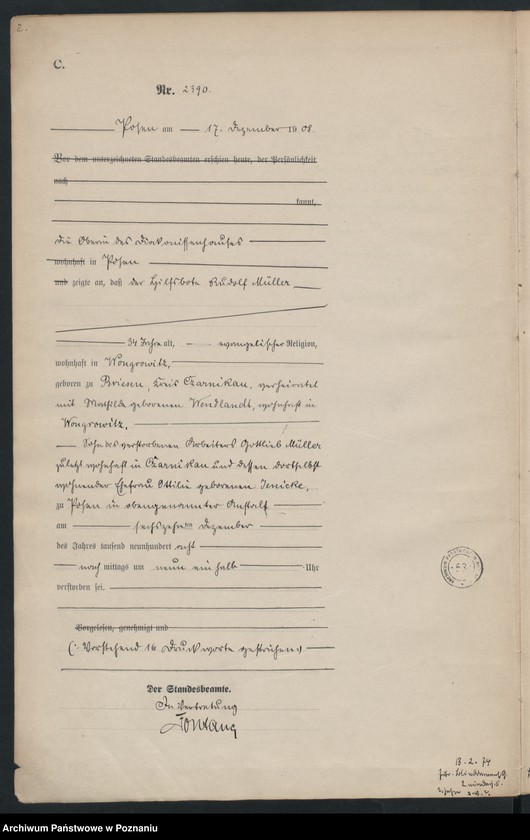 2.
C.
Nr. 2390.
Posen am 17. Dezember 1908.
Vor dem unterzeichneten Standesbeamten erschien heute, der Persönlichkeit
nach
kannt,
die Oberin des Diakonissenhauses
wohnhaft in Posen
und zeigte an, daß der Hilfsbote Rudolf Müller
34 Jahre alt, evangelischer Religion,
wohnhaft in Wongrowitz,
geboren zu Briesen, Kreis Czarnikau, verheiratet
mit Mathilde geborenen Wendlandt, wohnhaft in
Wongrowitz,
Sohn des verstorbenen Arbeiters Gottlieb Müller
zuletzt wohnhaft in Czarnikau und dessen dortselbst
wohnender Ehefrau Ottilie geborenen Jenicke,
zu Posen in obengenannter Anstalt
am sechszehnten Dezember
des Jahres tausend neunhundert acht
nachmittags um neun ein halb Uhr
verstorben sei.
Vorgelesen, genehmigt und
(Vorstehend 16 Druckworte gestrichen)
Der Standesbeamte.
In Vertretung
13.2.74
Archiwum Państwowe w Poznaniu